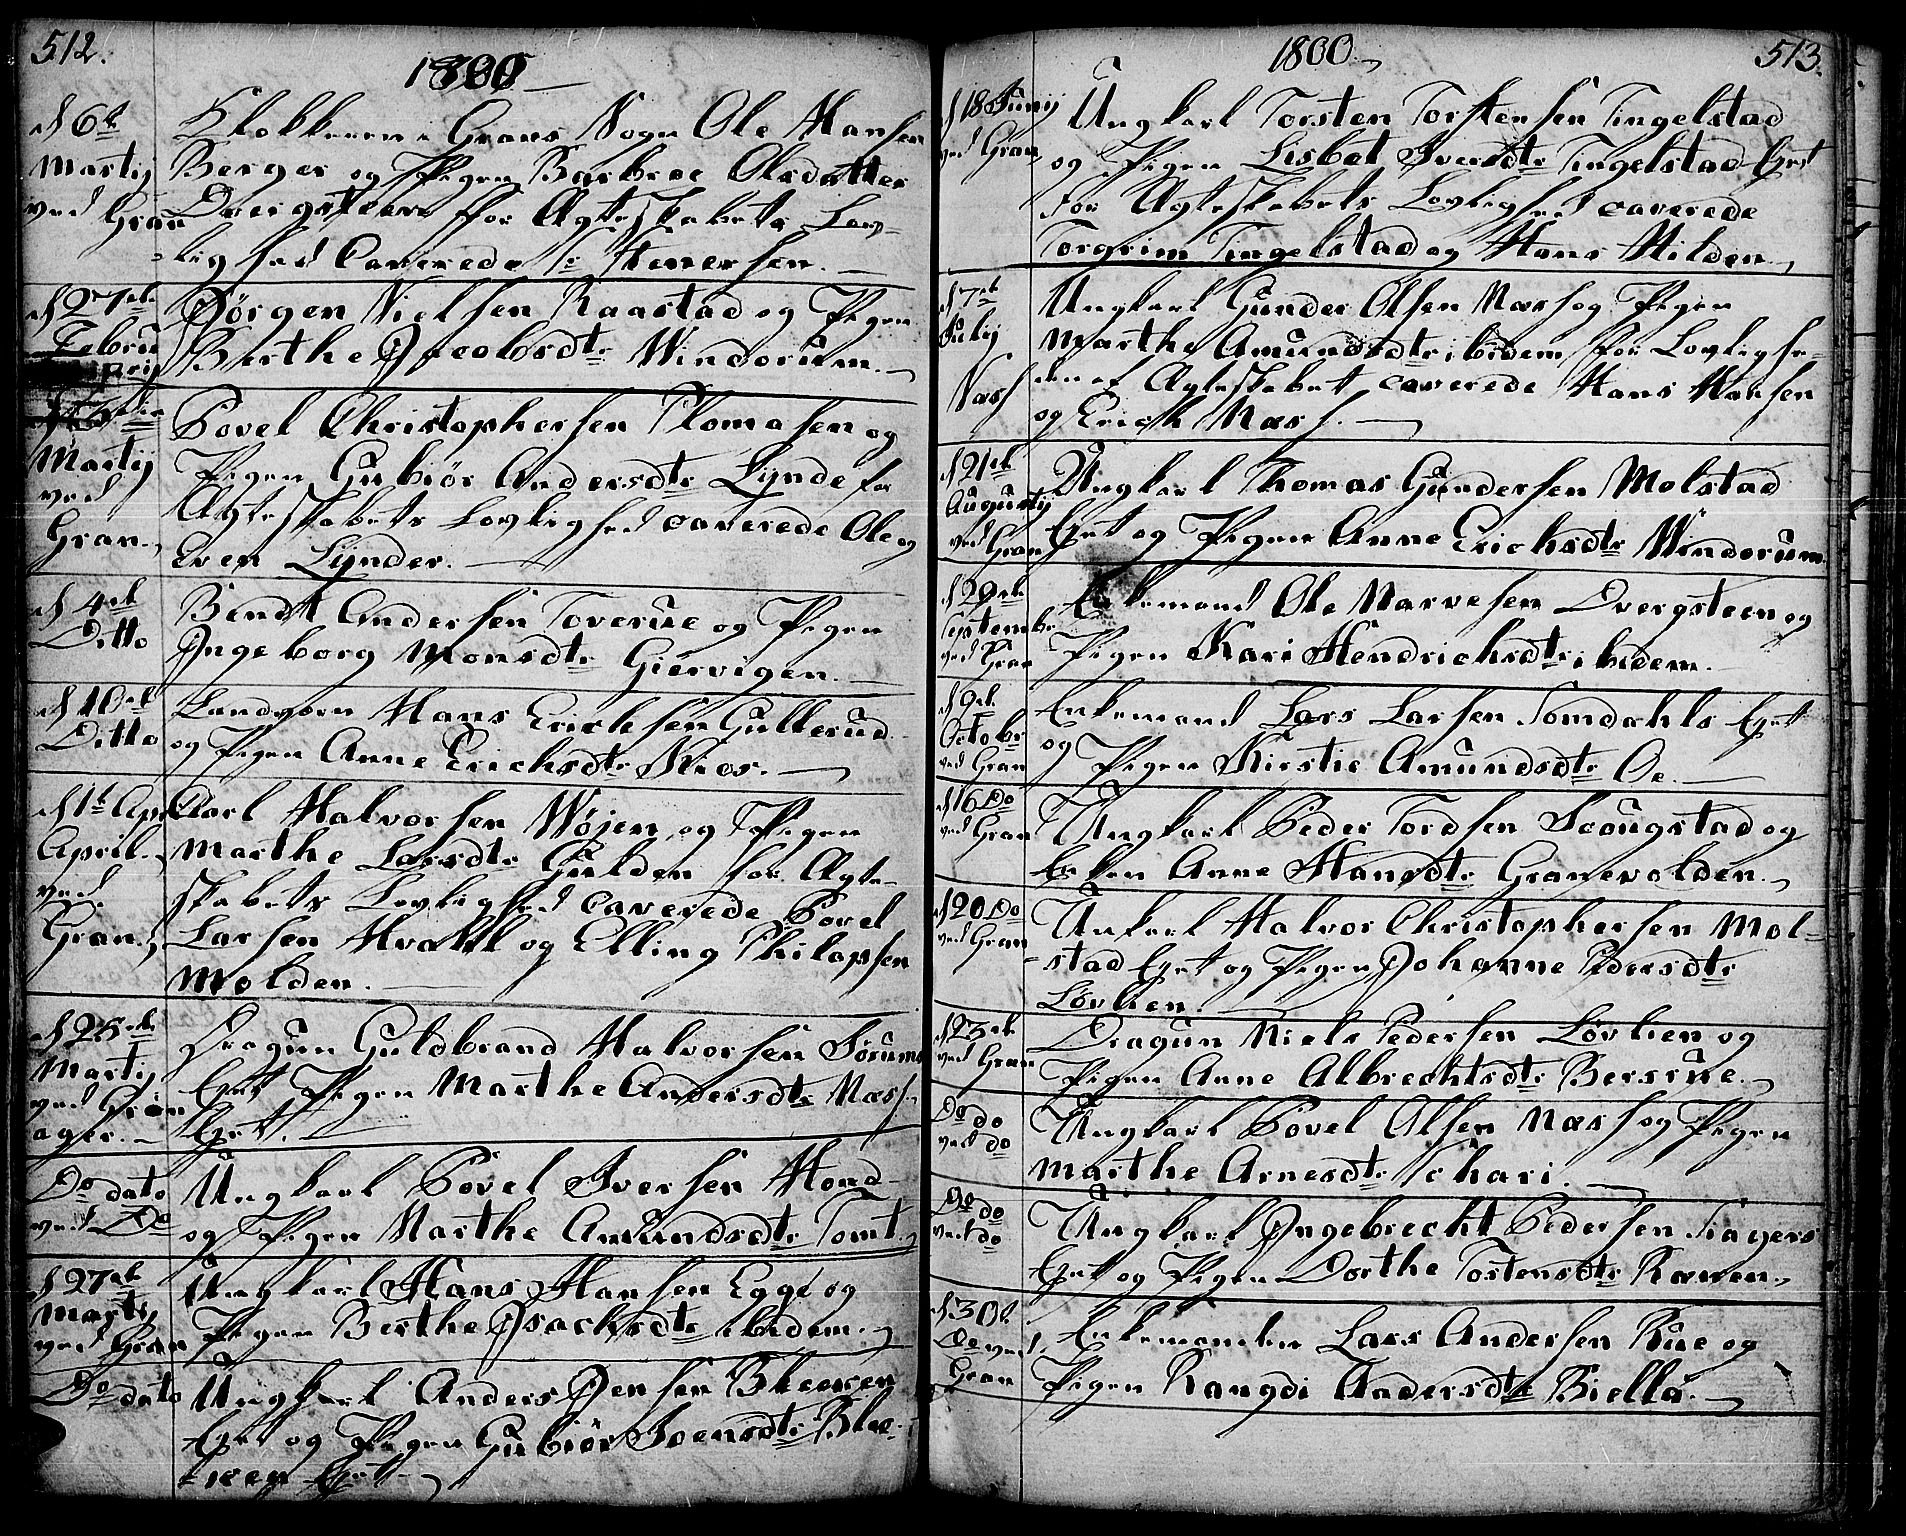 512.
1800
d 6t Martij ved Gran
Klokkeren i Grans Sogn Ole Hansen
Berger og Pigen Barbroe Olsdatter
Dvergsteen for Ægteskabets Lov-
lighed Caverede Sr Stenersen.
d 27de Februarij
Jørgen Nielsen Raastad og Pigen
Berthe Jacobsdtr Windorum.
Martij ved Gran
Povel Christophersen Plomasen og
Pigen Gubiør Andersdtr Lynde for
Ægteskabets Lovlighed caverede Ole og
Even Lynder.
d 4de Ditto
Bendt Andersen Toverue og Pigen
Ingeborg Monsdtr Giervigen.
d 10de Ditto
Landværn Hans Erichsen Gullerud
og Pigen Anne Erichsdtr Kios.
d 1t Apr April. ved Gran.
Carl Halvorsen Wøjen og Pigen
Marthe Larsdtr Gulden for Ægte-
skabets Lovlighed caverede Povel
Larsen Hvahl og Elling Philopsen
Molden.
d 25de Martij ved Gran ager.
Dragun Guldbrand Halvorsen Sørum
Eyet Pigen Marthe Andersdtr Næss-
Eyet.
Do dato ved Do
Ungkarl Povel Iversen Hond-
og Pigen Marthe Amundsdtr Tomt
d 27de Martij ved Gran
Ungkarl Hans Hansen Egge og
Pigen Berthe Isachsdtr ibidem.
Do dato
Ungkarl Anders Jensen Bleeken
Eyet og Pigen Gubiør Iversdtr Blee-
-ken Eyet
1800
513.
d 18 Junij ved Gran
Ungkarl Torsten Torstensen Tingelstad
og Pigen Lisbet Iversdtr Tingelstad Eyet
For Ægteskabets Lovlighed caverede
Torgrim Tingelstad og Hans Hilden
d 7de Julij Næss
Ungkarl Gunder Olsen Næss og Pigen
Marthe Amundsdtr ibidem for Lovlighe-
den af Ægteskabet caverede Hans Hansen
og Erich Næss.
d 21de Augustij ved Gran
Ungkarl Thomas Gundersen Molstad
Eyet og Pigen Anne Erichsdtr Windorum
d 29de Septembr ved Gran
Enkemand Ole Narvesen Dvergsteen og
Pigen Kari Hendrichsdtr ibidem.
d 9de Octobr ved Gran
Enkemand Lars Larsen Tomdahls Eyet
og Pigen Kirstie Amundsdtr Oe.
d 16 Do ved Gran
Ungkarl Peder Tordsen Scougstad og
Enken Anne Hansdtr Granevolden.
d 20 Do ved Gran
Unkarl Halvor Christophersen Mol-
-stad Eyet og Pigen Johanne Pedersdtr
Løvlien.
d 23de ved Gran
Dragun Niels Pedersen Løvlien og
Pigen Anne Albrechtsdtr Bersrue.
Do do ved do
Ungkarl Povel Olsen Næss og Pigen
Marthe Arnesdtr Schari.
Do do ved do
Ungkarl Ingebrecht Pedersen Tingers
Eyet og Pigen Dorthe Tostensdtr Raven.
d 30t Do ved Gran
Enkemanden Lars Andersen Rue og
Pigen Rangdi Andersdtr Biella.